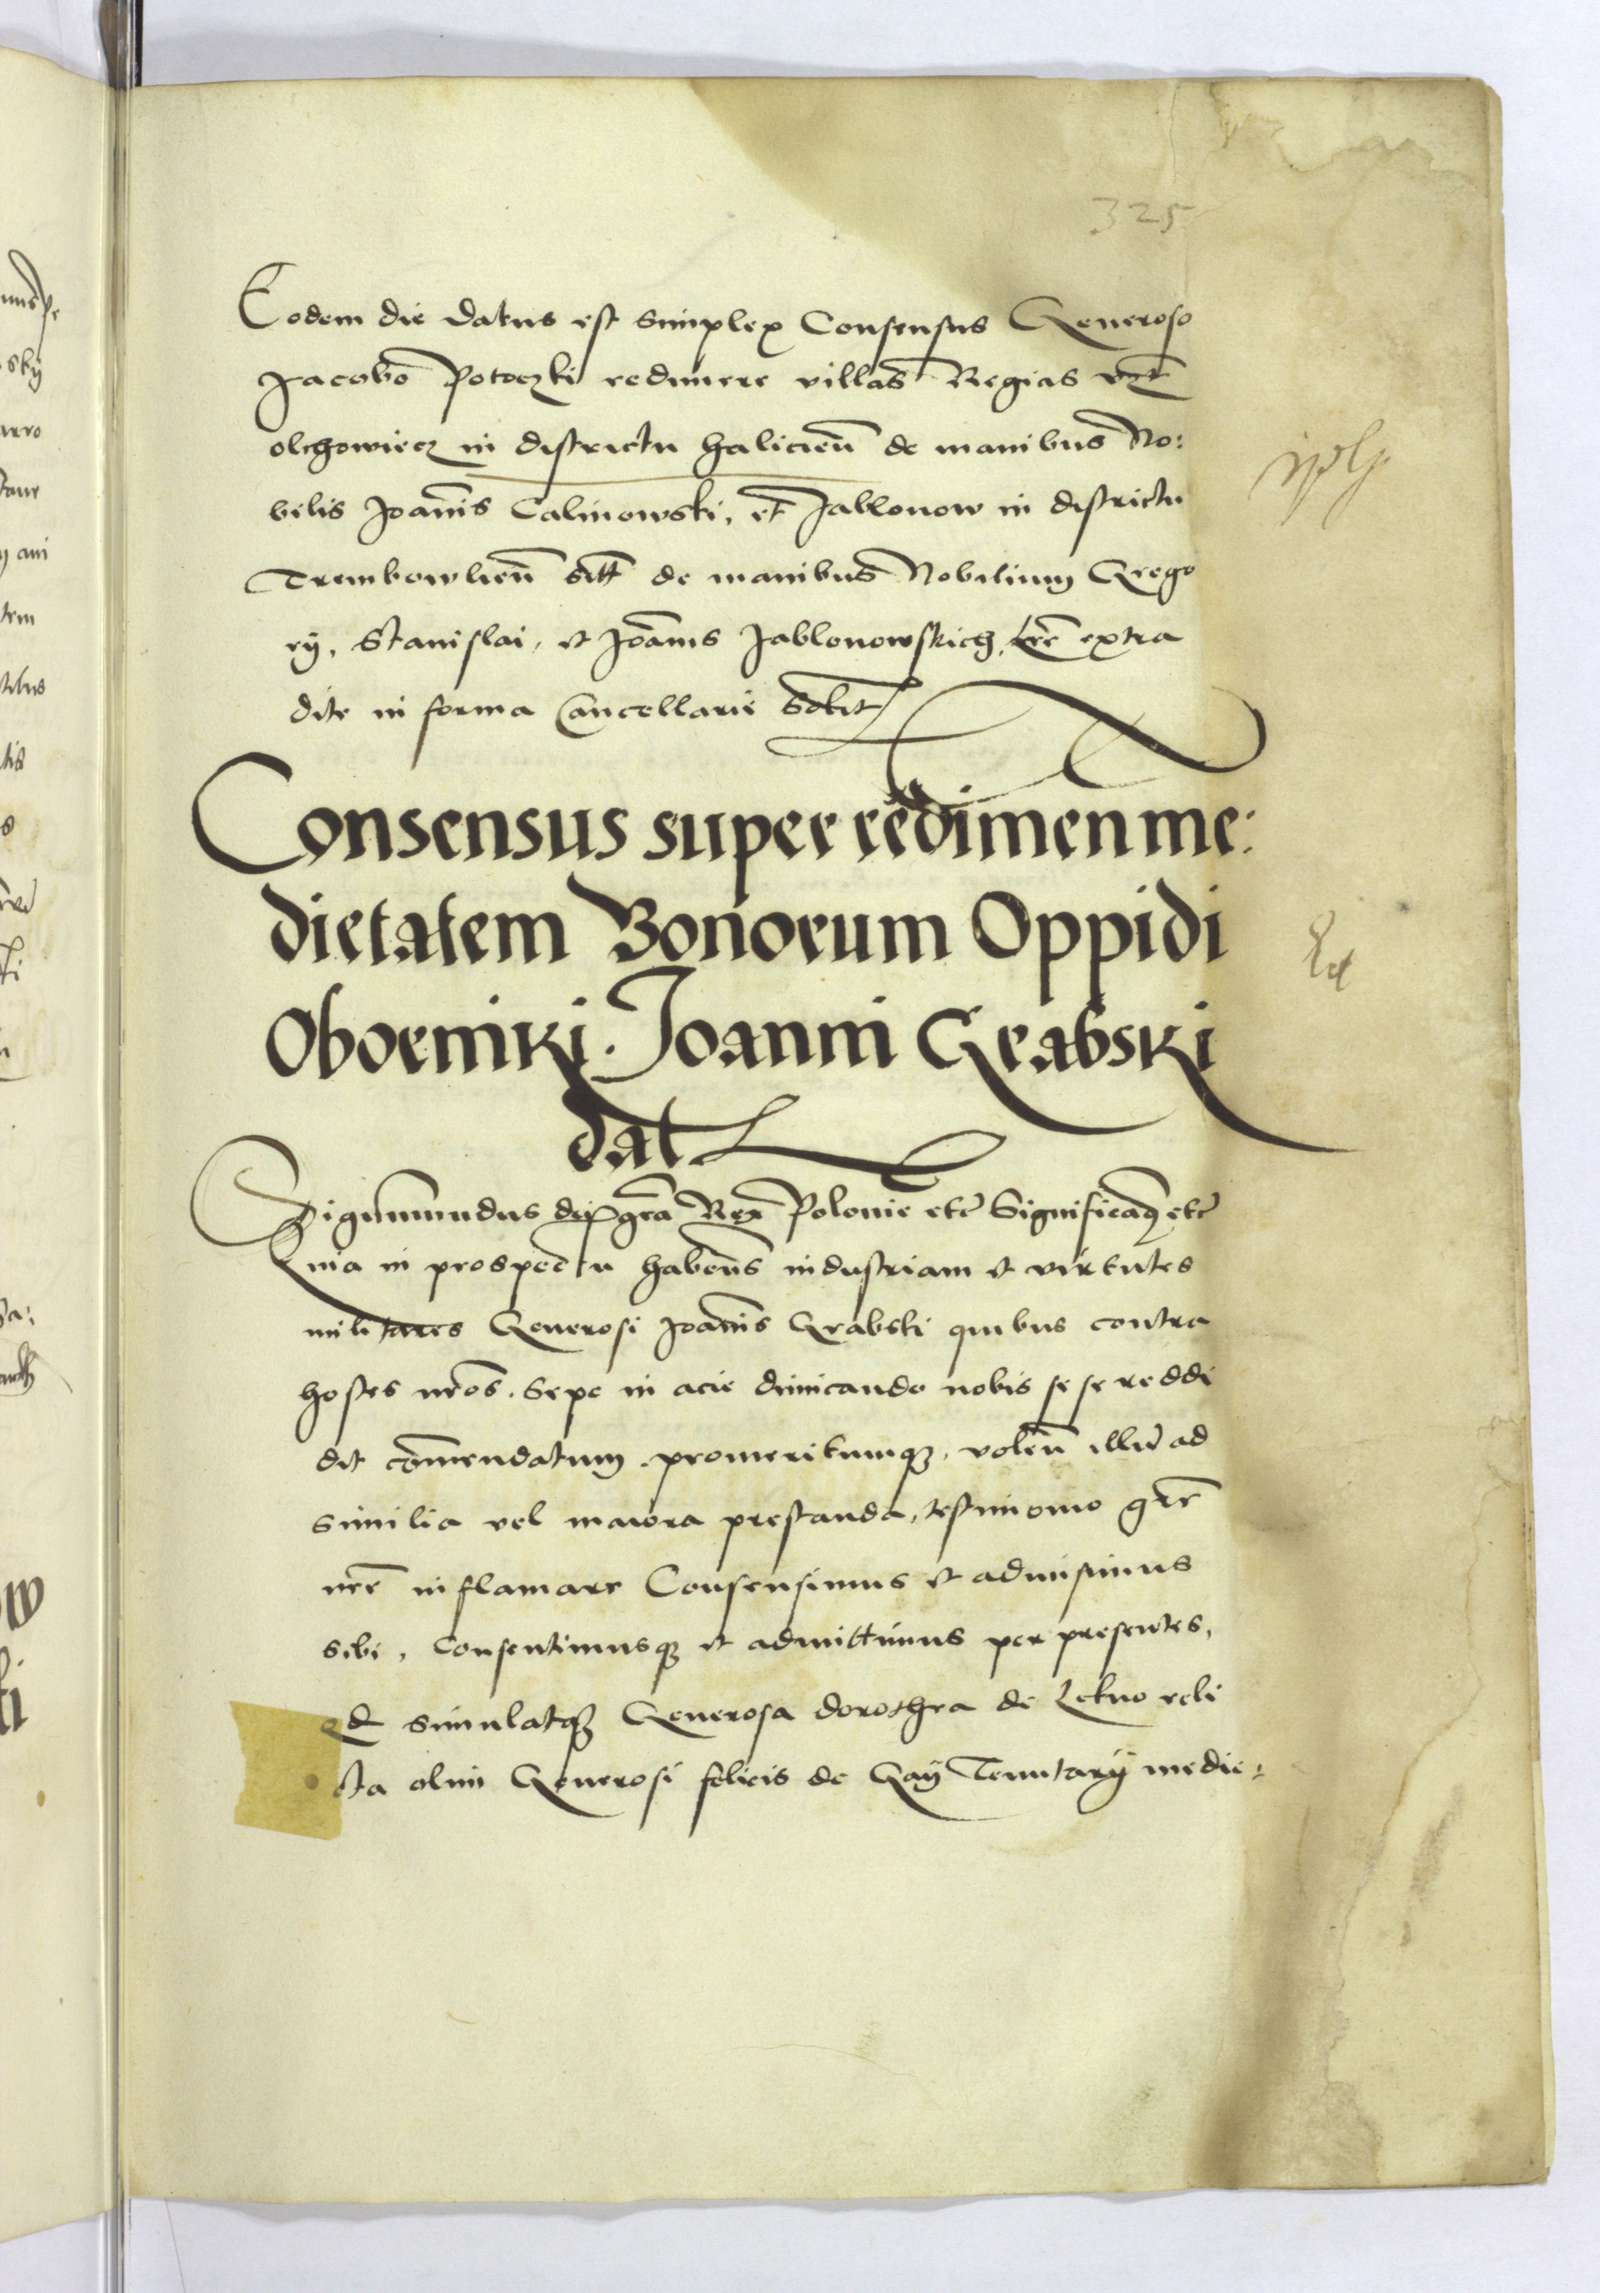 325
Eodem die datus est simplex Consensus Generoso
Jacobo Potoczki redimere villas Regias vcz
olchowiecz in districtu halicien̄ de manibus No:
bilis Joannis Calinowski, et Jablonow in districtu
Trembowlien̄ sitt de manibus Nobilium Grego
rij, Stanislai, et Joannis Jablonowskich, lre extra
dite in forma Cancellarie Solit
Consensus super redimen me:
dietatem Bonorum Oppidi
Oborniki. Joanni Grabski
dat
Sigismundus dei gra Rex Polonie etc Significam9 etc
Quia in prospectu haben̄s industriam et virtutes
militares Generosi Joannis Grabski quibus contra
hostes nros. Sepe in acie dimicando nobis se se reddi
dit comendatum promeritumq3, volen̄ illū ad
similia vel maiora prestanda, testimonio gre
nre inflamare Consensimus et admisimus
sibi, Consentimusq3 et admittimus per presentes,
qd simulatq3 Generosa dorothea de Lekno reli
cta olim Generosi felicis de Gay Tenutarij medie: